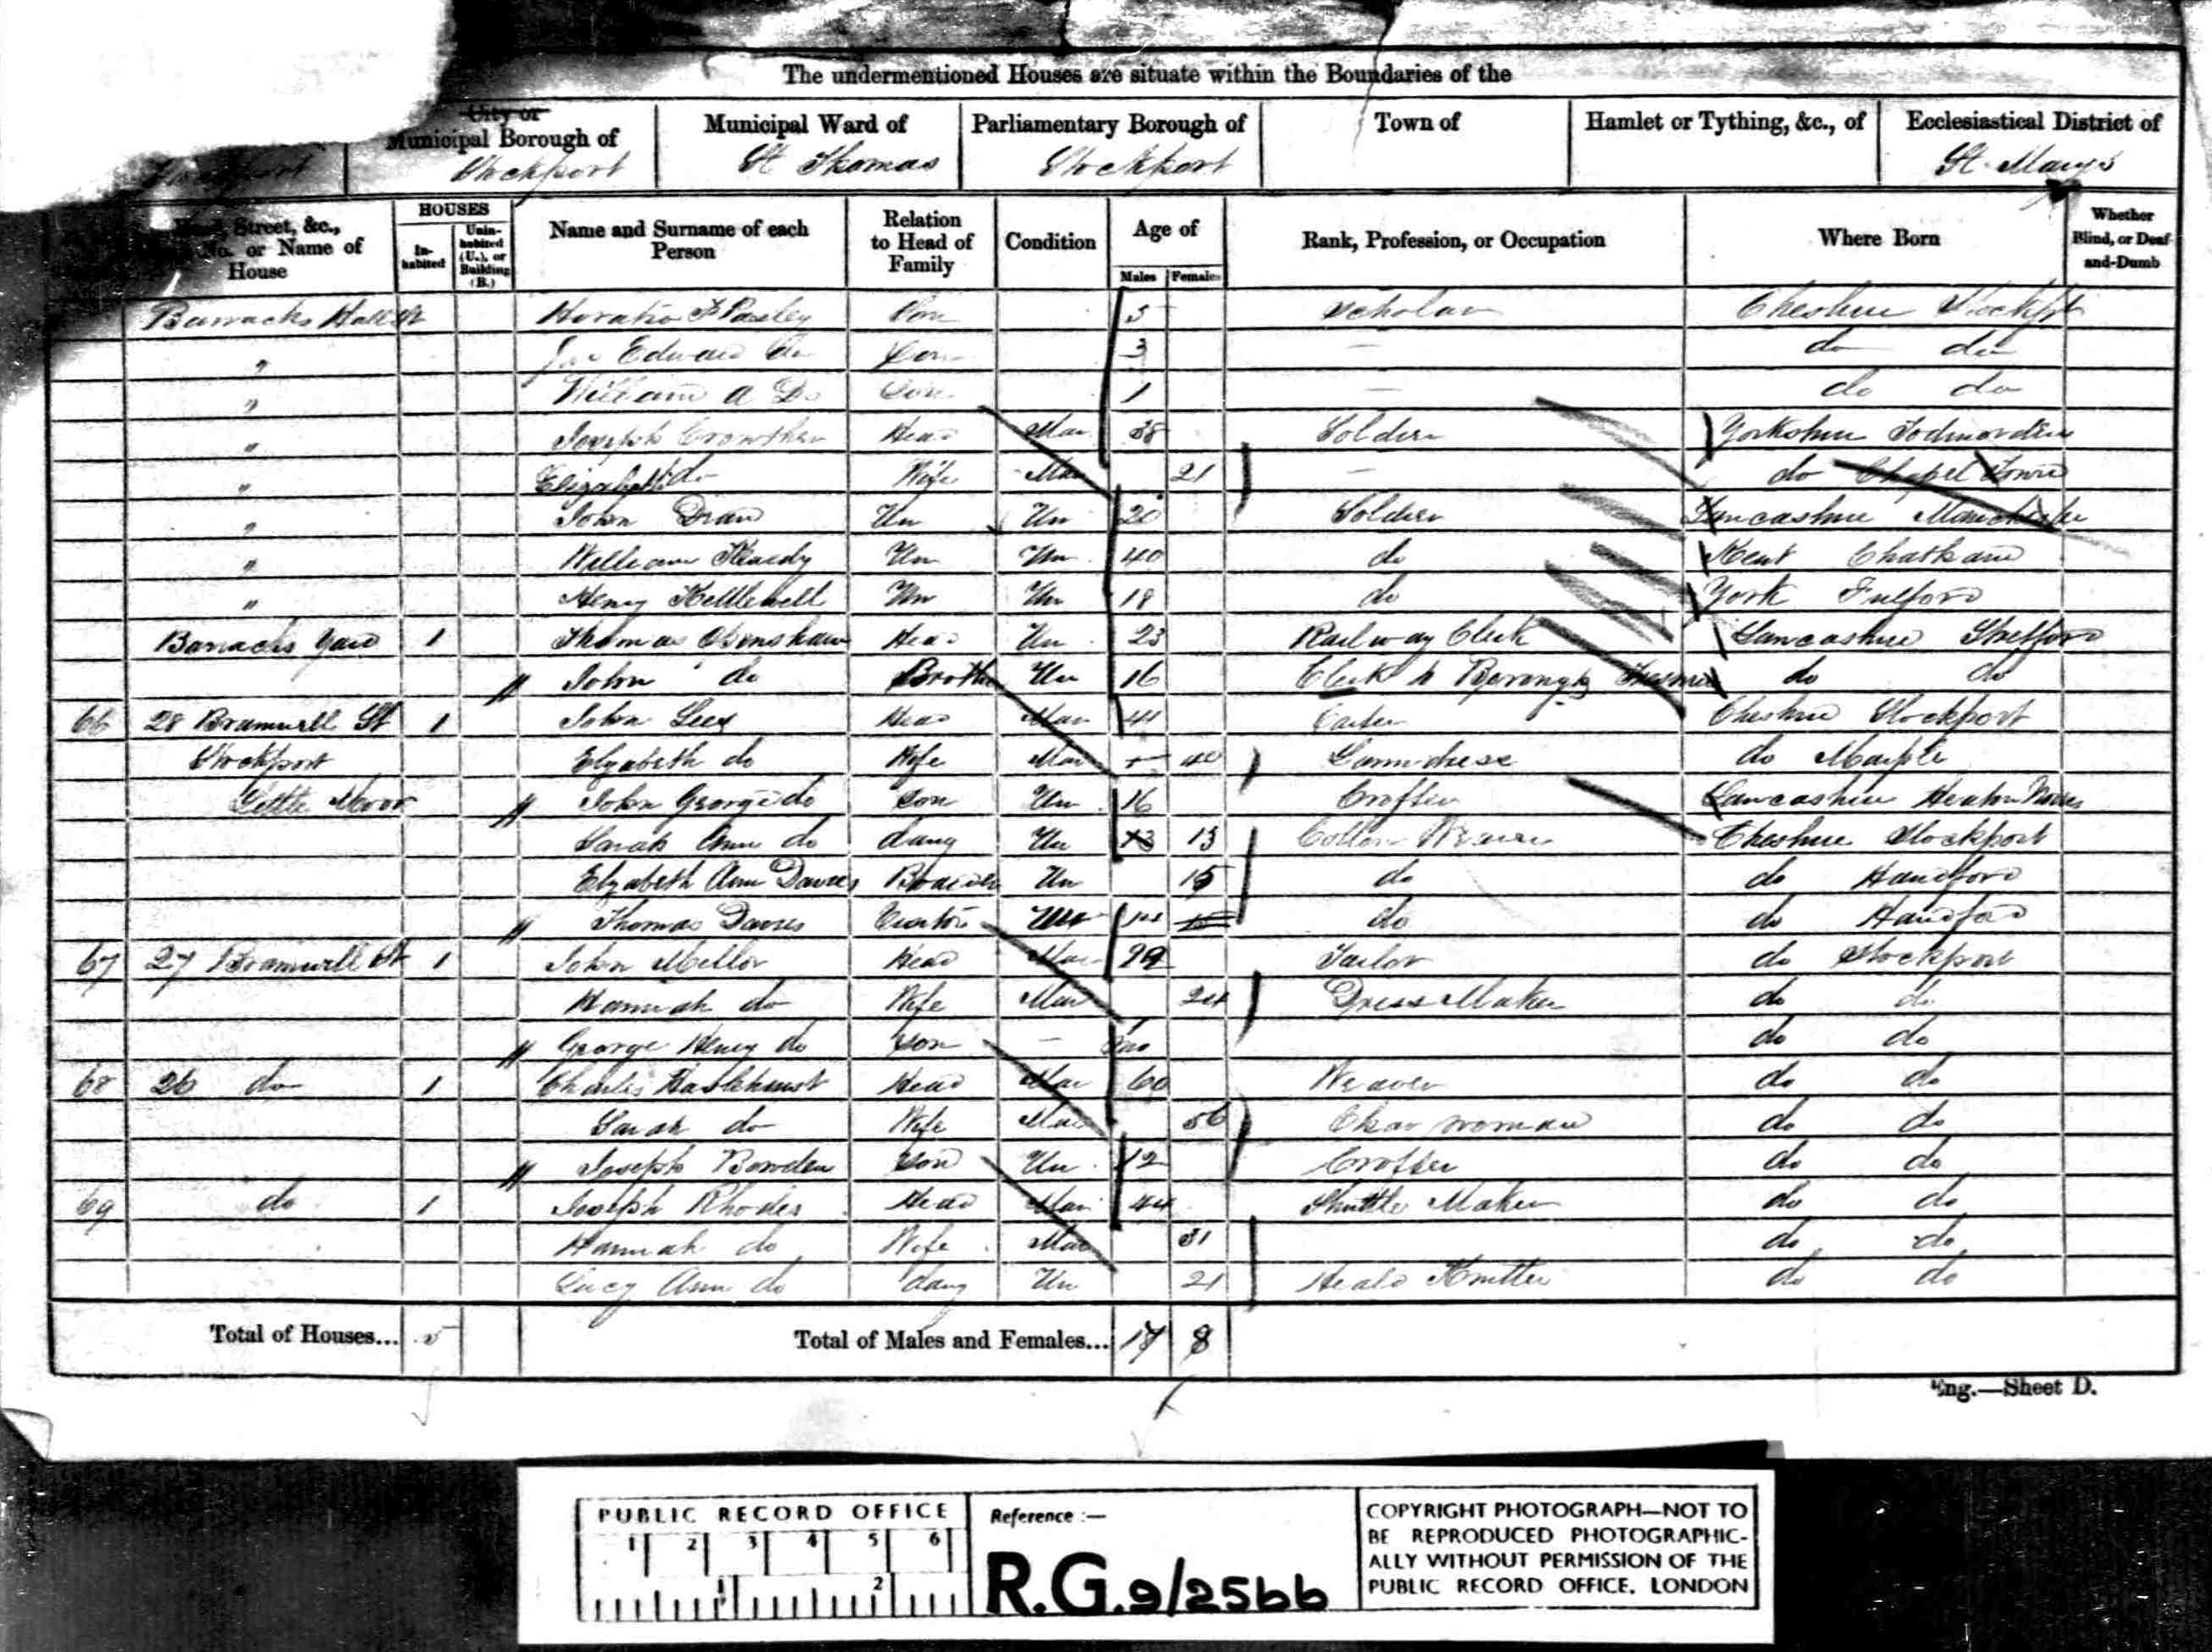 The undermentioned Houses are situate within the Boundaries of the
City or Municipal Borough of Stockport
Municipal Ward of St Thomas
Parliamentary Borough of Stockport
Town of
Hamlet or Tything, &c., of
Ecclesiastical District of St. Mary's
Street, &c., No. or Name of House
HOUSES
In-habited
Unin-habited (U.), or Building (B.)
Name and Surname of each Person
Relation to Head of Family
Condition
Age of
Males Females
Rank, Profession, or Occupation
Where Born
Whether Blind, or Deaf-and-Dumb
Barracks Horatio Son 5 Scholar Cheshire
" Edward Do Son 3 — do do
" William A Do Son 1 — do do
" Joseph Crowther Head Mar 38 Soldier Yorkshire Todmorden
" Elizabeth do Wife Mar 21 — do Chapel Town
" John Un Un 20 Soldier Lancashire Manchester
" William Un Un 40 do Kent Chatham
" Henry Kettlewell Un Un 18 do York Fulford
Barracks Yard 1 Thomas Openshaw Head Un 23 Railway Clerk Lancashire Stretford
John do Brother Un 16 Clerk to do do
66 28 Bramwell St 1 John Lees Head Mar 41 Carter Cheshire Stockport
Stockport Elizabeth do Wife Mar 40 do Marple
Little Moor John George do Son Un 16 Crofter Lancashire Heaton Norris
Sarah Ann do daug Un 13 13 Cotton Weaver Cheshire Stockport
Elizabeth Ann Davies Boarder Un 15 do do Handford
Thomas Davies Un 14 do do Handford
67 27 Bramwell St 1 John Mellor Head Mar 29 Tailor do Stockport
Hannah do Wife Mar 24 Dress Maker do do
George Henry do Son — do do
68 26 do 1 Charles Head Mar 60 Weaver do do
Sarah do Wife Mar 56 Char woman do do
Joseph Bowden Son Un 12 Crofter do do
69 do 1 Joseph Rhodes Head Mar 44 Shuttle Maker do do
Hannah do Wife Mar 31 do do
Lucy Ann do daug Un 21 Heald Knitter do do
Total of Houses... 5
Total of Males and Females... 17 8
Eng.—Sheet D.
PUBLIC RECORD OFFICE
1 2 3 4 5 6
1 2
Reference :—
R.G. 9/2566
COPYRIGHT PHOTOGRAPH—NOT TO
BE REPRODUCED PHOTOGRAPHIC-
ALLY WITHOUT PERMISSION OF THE
PUBLIC RECORD OFFICE, LONDON